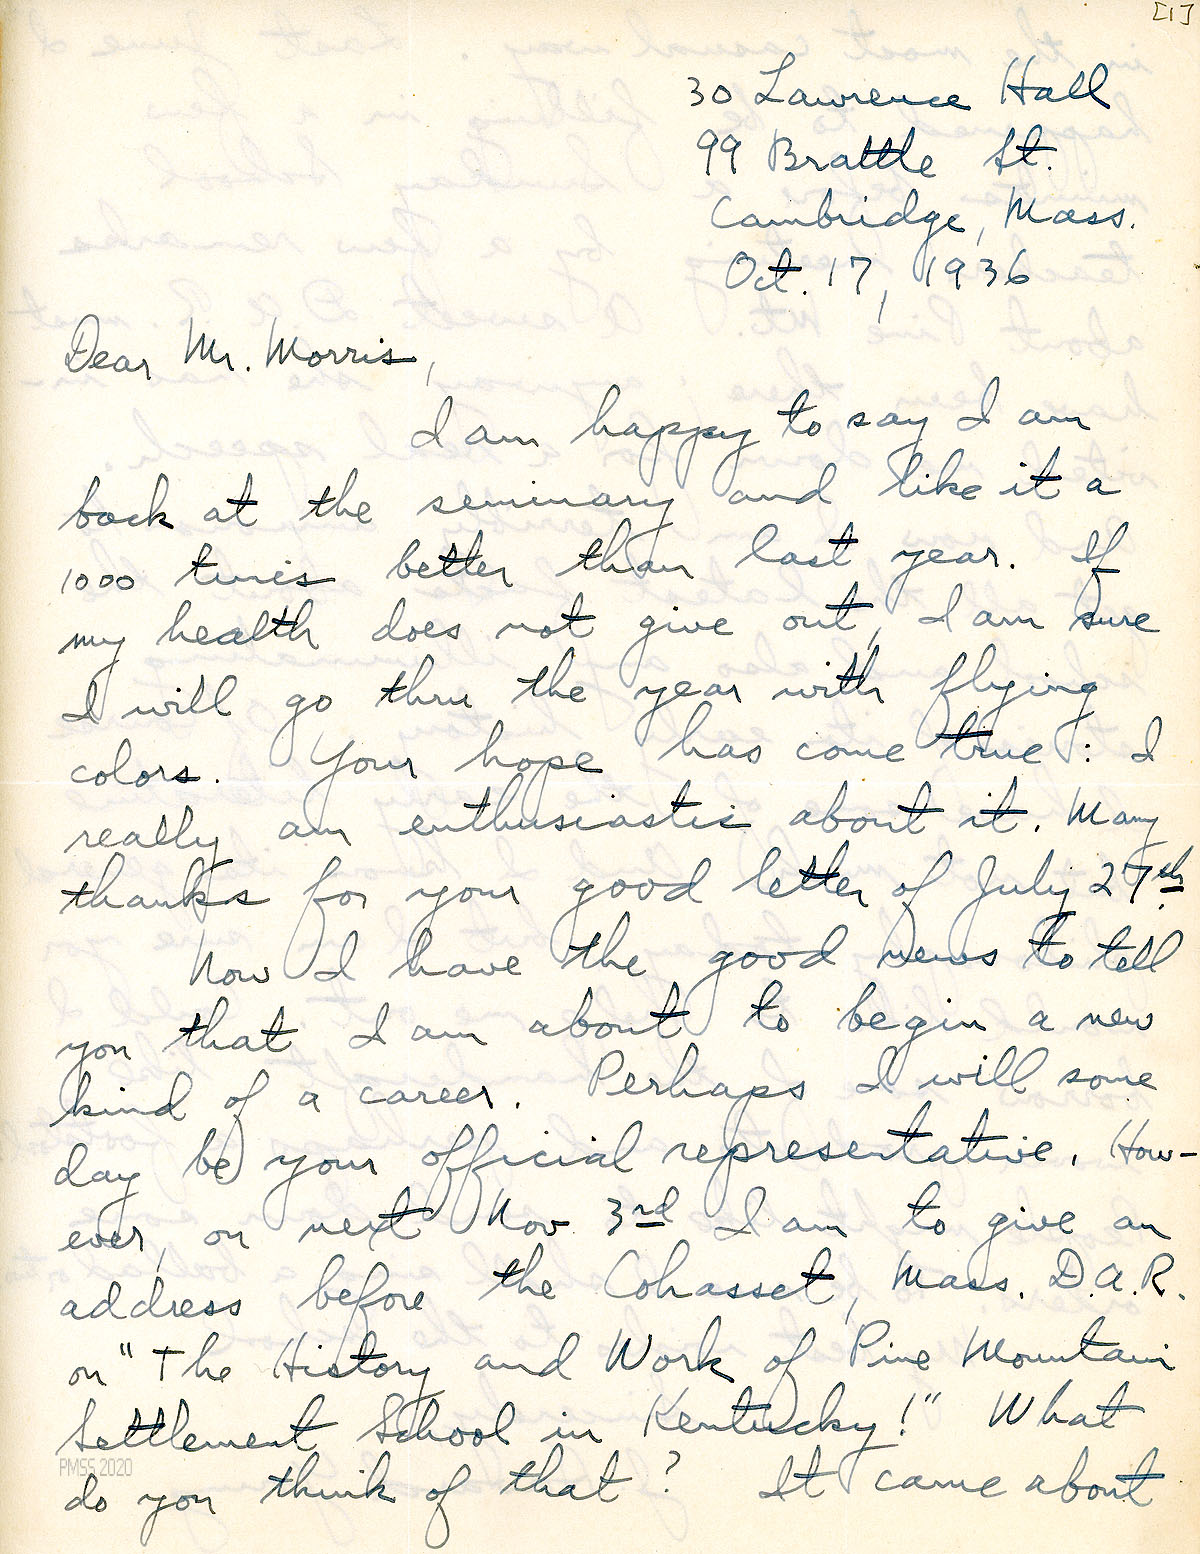 [1]
30 Lawrence Hall
99 Brattle St.
Cambridge, Mass.
Oct. 17, 1936
Dear Mr. Morris,
I am happy to say I am
back at the seminary and like it a
1000 times better than last year. If
my health does not give out, I am sure
I will go thru the year with flying
colors. Your hope has come true: I
really am enthusiastic about it. Many
thanks for your good letter of July 27th.
Now I have the good news to tell
you that I am about to begin a new
kind of a career. Perhaps I will some
day be your official representative. How-
ever, on next Nov 3rd I am to give an
address before the Cohasset, Mass. D.A.R.
on "The History and Work of Pine Mountain
Settlement School in Kentucky!" What
PMSS 2020
do you think of that? It came about